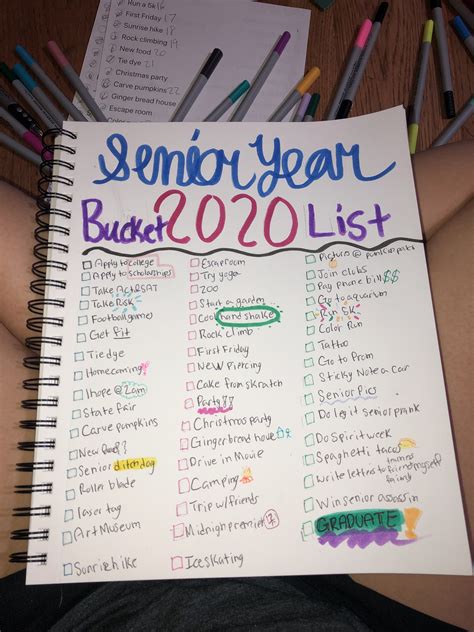 Run a 5k 16
First Friday 17
Sunrise hike 18
Rock climbing 19
New food 20
Tie dye 21
Christmas party
Carve pumpkins 22
Ginger bread house
Escape room
Senior Year
Bucket 2020 List
Apply to college
Apply to scholarships
Take ACT & SAT
Take Risk
Football game
Get Fit
Tie dye
Homecoming
Ihope @ 2am
State fair
Carve pumpkins
New food?
Senior ditch day
Roller blade
laser tag
Art Museum
Sunrise hike
Escaperoom
Try yoga
ZOO
Start a garden
Cool hand shake
Rock climb
First Friday
New Piercing
Cake from skratch
Party!!
Christmas party
Gingerbread house
Drive in Movie
Camping
Trip w/ friends
Midnight premier
Iceskating
Picture @ pumkin patch
Join clubs
Pay phone bill $$
Go to aquarium
Run 5K
Color Run
Tattoo
Go to Prom
Sticky Note a car
Senior Pics
Do legit senior prank
Do Spirit week
Spaghetti tacos
Write letters to friend, myself
family
Win senior assassin
GRADUATE!